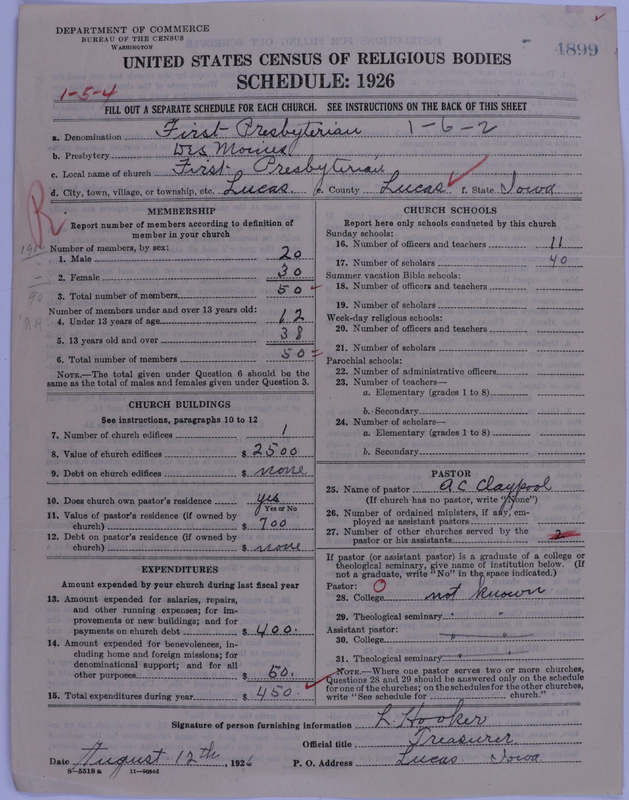 DEPARTMENT OF COMMERCE
BUREAU OF THE CENSUS
WASHINGTON
4899
UNITED STATES CENSUS OF RELIGIOUS BODIES
SCHEDULE: 1926
1-5-4
FILL OUT A SEPARATE SCHEDULE FOR EACH CHURCH. SEE INSTRUCTIONS ON THE BACK OF THIS SHEET
a. Denomination First Presbyterian 1-6-2
b. Presbytery Des Moines
c. Local name of church First Presbyterian
d. City, town, village, or township, etc. Lucas e. County Lucas f. State Iowa
R
MEMBERSHIP
Report number of members according to definition of member in your church
Number of members, by sex:
1. Male 20
2. Female 30
3. Total number of members 50
Number of members under and over 13 years old:
4. Under 13 years of age 12
5. 13 years old and over 38
6. Total number of members 50
NOTE.—The total given under Question 6 should be the same as the total of males and females given under Question 3.
CHURCH BUILDINGS
See instructions, paragraphs 10 to 12
7. Number of church edifices 1
8. Value of church edifices $ 2500
9. Debt on church edifices $ none
10. Does church own pastor's residence yes
Yes or No
11. Value of pastor's residence (if owned by
church) $ 700
12. Debt on pastor's residence (if owned by
church) $ none
EXPENDITURES
Amount expended by your church during last fiscal year
13. Amount expended for salaries, repairs,
and other running expenses; for im-
provements or new buildings; and for
payments on church debt $ 400.
14. Amount expended for benevolences, in-
cluding home and foreign missions; for
denominational support; and for all
other purposes $ 50.
15. Total expenditures during year $ 450
CHURCH SCHOOLS
Report here only schools conducted by this church
Sunday schools:
16. Number of officers and teachers 11
17. Number of scholars 40
Summer vacation Bible schools:
18. Number of officers and teachers
19. Number of scholars
Week-day religious schools:
20. Number of officers and teachers
21. Number of scholars
Parochial schools:
22. Number of administrative officers
23. Number of teachers—
a. Elementary (grades 1 to 8)
b. Secondary
24. Number of scholars—
a. Elementary (grades 1 to 8)
b. Secondary
PASTOR
25. Name of pastor A C Claypool
(If church has no pastor, write "None")
26. Number of ordained ministers, if any, em-
ployed as assistant pastors
27. Number of other churches served by the
pastor or his assistants 2
If pastor (or assistant pastor) is a graduate of a college or
theological seminary, give name of institution below. (If
not a graduate, write "No" in the space indicated.)
Pastor:
28. College not known
29. Theological seminary
Assistant pastor:
30. College
31. Theological seminary
NOTE.—Where one pastor serves two or more churches,
Questions 28 and 29 should be answered only on the schedule
for one of the churches; on the schedules for the other churches,
write "See schedule for church."
Signature of person furnishing information L. Hooker
Official title Treasurer
Date August 12th, 1926 P. O. Address Lucas Iowa
8-5518 a